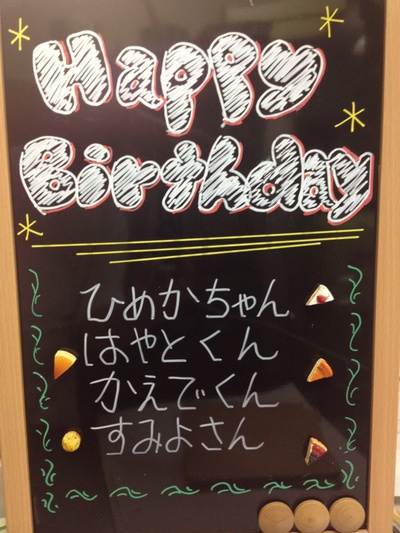 Happy
Birthday
ひめかちゃん
はやとくん
かえでくん
すみよさん